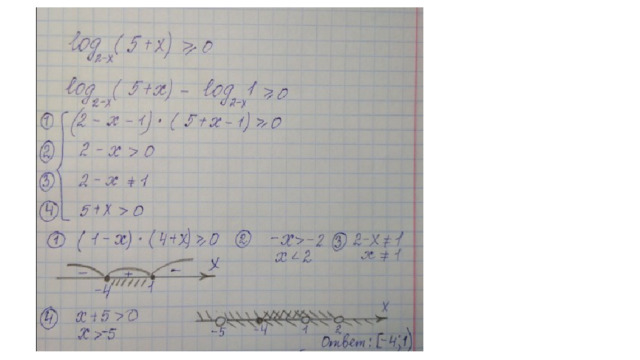 log₂₋ₓ(5+x) ≥ 0
log₂₋ₓ(5+x) - log₂₋ₓ1 ≥ 0
① (2-x-1)·(5+x-1) ≥ 0
② 2-x > 0
③ 2-x ≠ 1
④ 5+x > 0
① (1-x)·(4+x) ≥ 0 ② -x > -2 ③ 2-x ≠ 1
x < 2 x ≠ 1
- + - x
-4 1
④ x+5 > 0 x
x > -5 -5 -4 1 2
Ответ: [-4; 1)